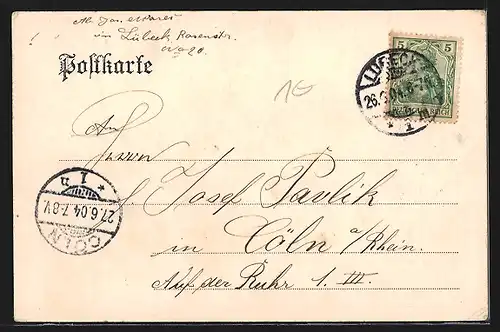 in Lübeck Rosenstr.
No 20.
Postkarte
1€
5 5
LÜBECK
26.6.04
1
An
Herrn
Josef Pavlik
in Cöln a/Rhein.
Auf der Ruhr 1. III.
* 1 n
27.6.04.7-8V.
CÖLN